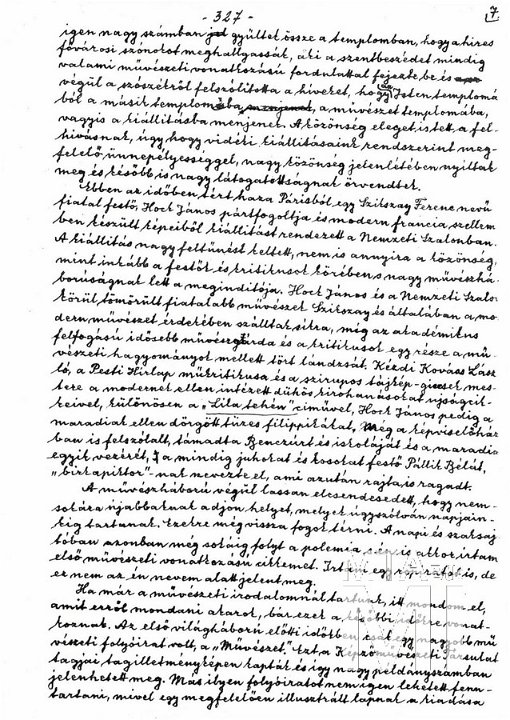 - 327 -
7
igen nagy számban gyűltek össze a templomban, hogy a híres
fővárosi szónokot meghallgassák, aki a szentbeszédet mindig
valami művészeti vonatkozású fordulattal fejezte be és
végül a szószékről felszólította a híveket, hogy az Isten templomá
ból a másik templomba, a művészet templomába,
vagyis a kiállításba menjenek. A közönség eleget is tett a fel-
hívásnak, úgy hogy vidéki kiállításaink rendszerint meg-
felelő ünnepélyességgel, nagy közönség jelenlétében nyíltak
meg és később is nagy látogatottságnak örvendtek.
Ebben az időben tért haza Párisból egy Szikszay Ferenc nevű
fiatal festő, Hock János pártfogoltja és modern francia szellem
ben készült képeiből kiállítást rendezett a Nemzeti Szalonban.
A kiállítás nagy feltűnést keltett, nem is annyira a közönség,
mint inkább a festők és kritikusok körében s nagy művészhá
borúságnak lett a megindítója. Hock János és a Nemzeti Szalo
körül tömörült fiatalabb művészek Szikszay és általában a mo
dern művészet érdekében szálltak síkra, míg az akadémikus
felfogású idősebb művészgárda és a kritikusok egy része a mű-
vészeti hagyományok mellett tört lándzsát. Kézdi Kovács Lász
ló, a Pesti Hirlap műkritikusa és a szirupos tájkép-giccsek mes-
tere a modernek ellen intézett dühös kirohanásokat újságcik-
keivel, különösen a „Lila tehén" cíművel, Hock János pedig a
maradiak ellen dörgött tüzes filippikákat, még a képviselőház
ban is felszólalt, támadta Benczúrt és iskoláját és a maradia
egyik vezérét, a mindig juhokat és kosokat festő Pállik Bélát,
„birkapiktor"-nak nevezte el, ami azután rajta is ragadt.
A művészháború végül lassan elcsendesedett, hogy nem-
sokára újabbaknak adjon helyet, melyek úgyszólván napjain-
kig tartanak. Ezekre még vissza fogok térni. A napi és szaksaj
tóban azonban még sokáig folyt a polémia, s én is akkor írtam
első művészeti vonatkozású cikkemet. Irtam egy röpiratot is, de
ez nem az én nevem alatt jelent meg.
Ha már a művészeti irodalomnál tartunk, itt mondom el,
amit erről mondani akarok, bár ezek a későbbi időkre vonat-
koznak. Az első világháború előtti időkben csak egy nagyobb mű
vészeti folyóirat volt, a „Művészet". Ezt a Képzőművészeti Társulat
tagjai tagilletményképen kapták és így nagy példányszámban
jelenhetett meg. Más ilyen folyóiratot nem igen lehetett fenn-
tartani, mivel egy megfelelően illusztrált lapnak a kiadása